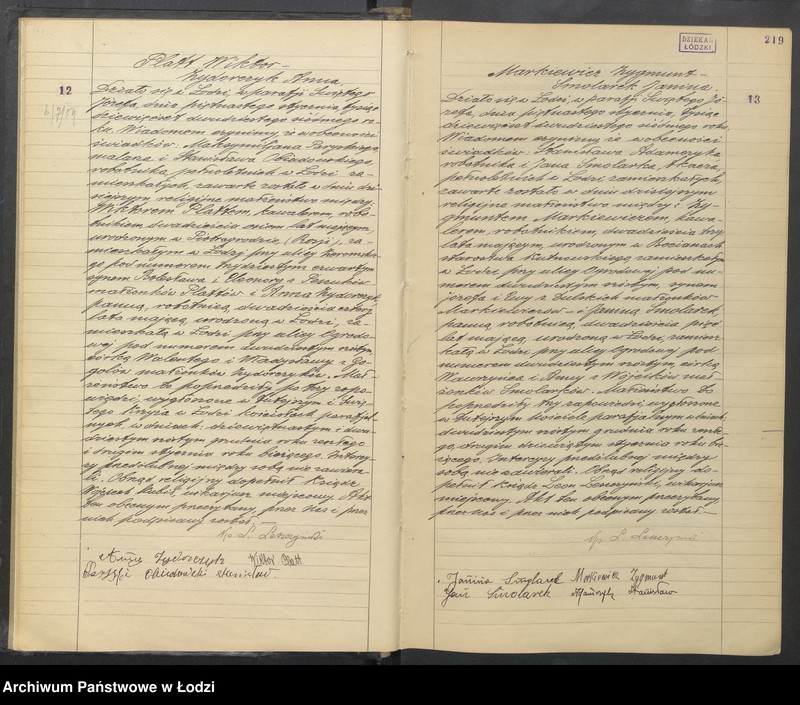 12
Platt Wiktor –
Zydorczyk Anna.
Działo się w Łodzi, w parafji Świętego
Józefa, dnia piętnastego stycznia, tysiąc
dziewięćset dwudziestego siódmego ro-
ku. Wiadomem czynimy, że w obecności
świadków: Maksymiljana
malarza i Stanisława Obiedowskiego
robotnika, pełnoletnich w Łodzi za-
mieszkałych, zawarte zostało w dniu dzi-
siejszym religijne małżeństwo między:
Wiktorem Plattem, kawalerem, robo-
tnikiem, dwadzieścia osiem lat mającym,
urodzonym w Piotrogrodzie (Rosji), za-
mieszkałym w Łodzi przy ulicy Żeromskie-
go pod numerem czwartym
synem Bolesława i Eleonory z
małżonków Plattów – i Anną Zydorczyk
panną, robotnicą, dwadzieścia cztery
lata mającą, urodzoną w Łodzi, za-
mieszkałą w Łodzi, przy ulicy Ogrodo-
wej pod numerem dwudziestym szóstym,
córką Walentego i Władysławy z Go-
golów małżonków Zydorczyków. Mał-
żeństwo to poprzedziły trzy zapo-
wiedzi, wygłoszone w tutejszym i Świę-
tego Krzyża w Łodzi kościołach parafjal-
nych w dniach: dziewiętnastym i dwu-
dziestym szóstym grudnia roku zeszłego
i drugim stycznia roku bieżącego. Intercy-
zy przedślubnej między sobą nie zawar-
li. Obrzęd religijny dopełnił Ksiądz
Wojciech wikarjusz miejscowy. Akt
ten obecnym przeczytany, przez Nas i przez
nich podpisany został.
Ks. L. Leszczyński
Anna Zydorczyk Wiktor Platt
Obiedowski Stanisław
DZIEKAN
ŁÓDZKI
219
13
Markiewicz Zygmunt –
Smolarek Janina.
Działo się w Łodzi, w parafji Świętego Jó-
zefa, dnia piętnastego stycznia, tysiąc
dziewięćset dwudziestego siódmego roku.
Wiadomem czynimy, że w obecności
świadków: Stanisława Adamczyka
robotnika i Jana Smolarka, tkacza,
pełnoletnich w Łodzi zamieszkałych,
zawarte zostało w dniu dzisiejszym
religijne małżeństwo między: Zy-
gmuntem Markiewiczem, kawa-
lerem, robotnikiem, dwadzieścia trzy
lata mającym, urodzonym w Bocianach
starostwa Kutnowskiego zamieszkałym
w Łodzi, przy ulicy Ogrodowej pod nu-
merem dwudziestym szóstym, synem
Józefa i Ewy z małżonków
Markiewiczów – i Janiną Smolarek,
panną, robotnicą, dwadzieścia pięć
lat mającą, urodzoną w Łodzi, zamiesz-
kałą w Łodzi, przy ulicy Ogrodowej pod
numerem dwudziestym szóstym, córką
Wawrzyńca i Anny z Wojcików mał-
żonków Smolarków. Małżeństwo to
poprzedziły trzy zapowiedzi, wygłoszone
w tutejszym kościele parafjalnym w dniach:
dwudziestym szóstym grudnia roku zeszłe-
go, drugim i dziewiątym stycznia roku bie-
żącego. Intercyzy przedślubnej między
sobą nie zawarli. Obrzęd religijny do-
pełnił Ksiądz Leon Leszczyński, wikarjusz
miejscowy. Akt ten obecnym przeczytany,
przez Nas i przez nich podpisany został. –
Ks. L. Leszczyński
Janina Smolarek Markiewicz Zygmunt
Jan Smolarek Adamczyk Stanisław
Archiwum Państwowe w Łodzi